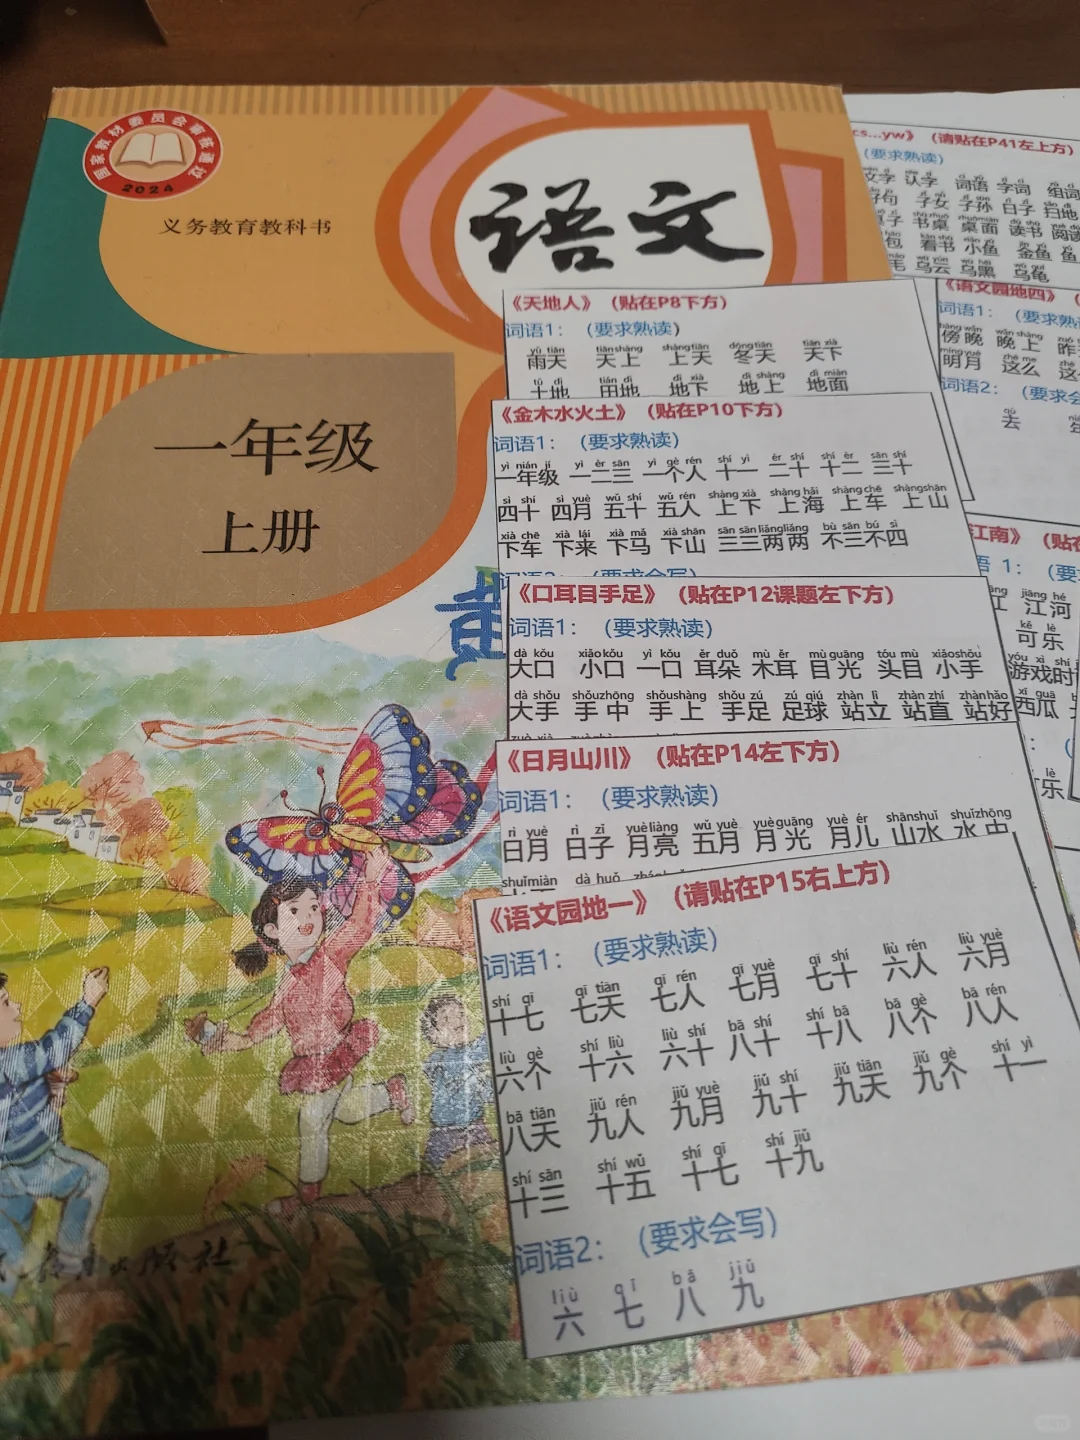 国家教材委员会审核通过
2024
义务教育教科书
语文
一年级
上册
教育出版社
《天地人》（贴在P8下方）
词语1：（要求熟读）
yǔ tiān tiān shàng shàng tiān dōng tiān tiān xià
雨天 天上 上天 冬天 天下
tǔ dì tián dì dì xià dì shàng dì miàn
土地 田地 地下 地上 地面
《金木水火土》（贴在P10下方）
词语1：（要求熟读）
yì nián jí yì èr sān yí gè rén shí yī èr shí shí èr sān shí
一年级 一二三 一个人 十一 二十 十二 三十
sì shí sì yuè wǔ shí wǔ rén shàng xià shàng hǎi shàng chē shàng shān
四十 四月 五十 五人 上下 上海 上车 上山
xià chē xià lái xià mǎ xià shān sān sān liǎng liǎng bù sān bú sì
下车 下来 下马 下山 三三两两 不三不四
词语2：（要求会写）
《口耳目手足》（贴在P12课题左下方）
词语1：（要求熟读）
dà kǒu xiǎo kǒu yì kǒu ěr duǒ mù ěr mù guāng tóu mù xiǎo shǒu
大口 小口 一口 耳朵 木耳 目光 头目 小手
dà shǒu shǒu zhōng shǒu shàng shǒu zú zú qiú zhàn lì zhàn zhí zhàn hǎo
大手 手中 手上 手足 足球 站立 站直 站好
《日月山川》（贴在P14左下方）
词语1：（要求熟读）
rì yuè rì zǐ yuè liàng wǔ yuè yuè guāng yuè ér shān shuǐ shuǐ zhōng
日月 日子 月亮 五月 月光 月儿 山水 水中
shuǐ miàn dà huǒ
《语文园地一》（请贴在P15右上方）
词语1：（要求熟读）
shí qī qī tiān qī rén qī yuè qī shí liù rén liù yuè
十七 七天 七人 七月 七十 六人 六月
liù gè shí liù liù shí bā shí shí bā bā gè bā rén
六个 十六 六十 八十 十八 八个 八人
bā tiān jiǔ rén jiǔ yuè jiǔ shí jiǔ tiān jiǔ gè shí yì
八天 九人 九月 九十 九天 九个 十一
shí sān shí wǔ shí qī shí jiǔ
十三 十五 十七 十九
词语2：（要求会写）
liù qī bā jiǔ
六 七 八 九
cs...yw》（请贴在P41左上方）
（要求熟读）
文字 认字 词语 字词 组词
好句 子女 子孙 日子 扫地
书桌 桌面 读书 阅读
包 看书 小鱼 金鱼
毛 乌云 乌黑 乌龟
《语文园地四》
词语1：（要求熟读
bàng wǎn wǎn shàng
傍晚 晚上 昨
míng yuè zhè me
明月 这么 这
词语2：（要求会
qù
去
江南》（贴在
1：（要
jiāng hé
江 江河
kě lè
可乐
yóu xì shí
游戏时
xī guā
西瓜
lè
乐